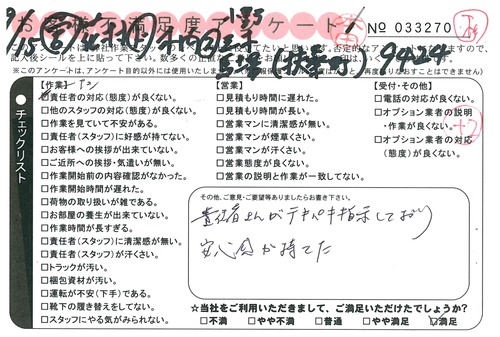 お客様不満足度アンケート
No 033270
記入後シールを上に貼って下さい。
【作業】
責任者の対応(態度)が良くない。
□他のスタッフの対応(態度)が良くない。
□作業を見ていて不安がある。
□責任者(スタッフ)に好感が持てない。
□お客様への挨拶が出来ていない。
□ご近所への挨拶・気遣いが無い。
□作業開始前の内容確認がなかった。
□作業開始時間が遅れた。
□荷物の取り扱いが雑である。
□お部屋の養生が出来ていない。
□作業時間が長すぎる。
□責任者(スタッフ)に清潔感が無い。
□責任者(スタッフ)が汗くさい。
□トラックが汚い。
□梱包資材が汚い。
□運転が不安(下手)である。
□靴下の履き替えをしてない。
□スタッフにやる気がみられない。
【営業】
□見積もり時間に遅れた。
□見積もり時間が長い。
□営業マンに清潔感が無い。
□営業マンが煙草くさい。
□営業マンが汗くさい。
□営業態度が良くない。
□営業の説明と作業が一致してない。
【受付・その他】
□電話の対応が良くない。
□オプション業者の説明
・作業が良くない。
□オプション業者の対応
(態度)が良くない。
チェックリスト
その他、ご意見・ご要望等ありましたらお書き下さい。
責任者さんがテキパキ指示しており
安心感が持てた
☆当社をご利用いただきまして、ご満足いただけたでしょうか?
□不満 □やや不満 □普通 □やや満足 □満足